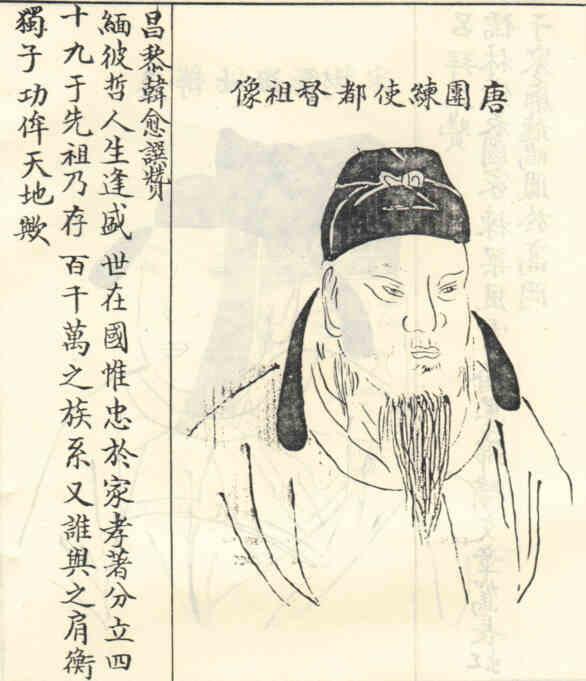 唐團練使都督祖像
昌黎韓愈譔贊
緬彼哲人生逢盛世在國惟忠於家孝著分立四
十九于先祖乃存百千萬之族系又誰與之肩衡
獨子功侔天地歟